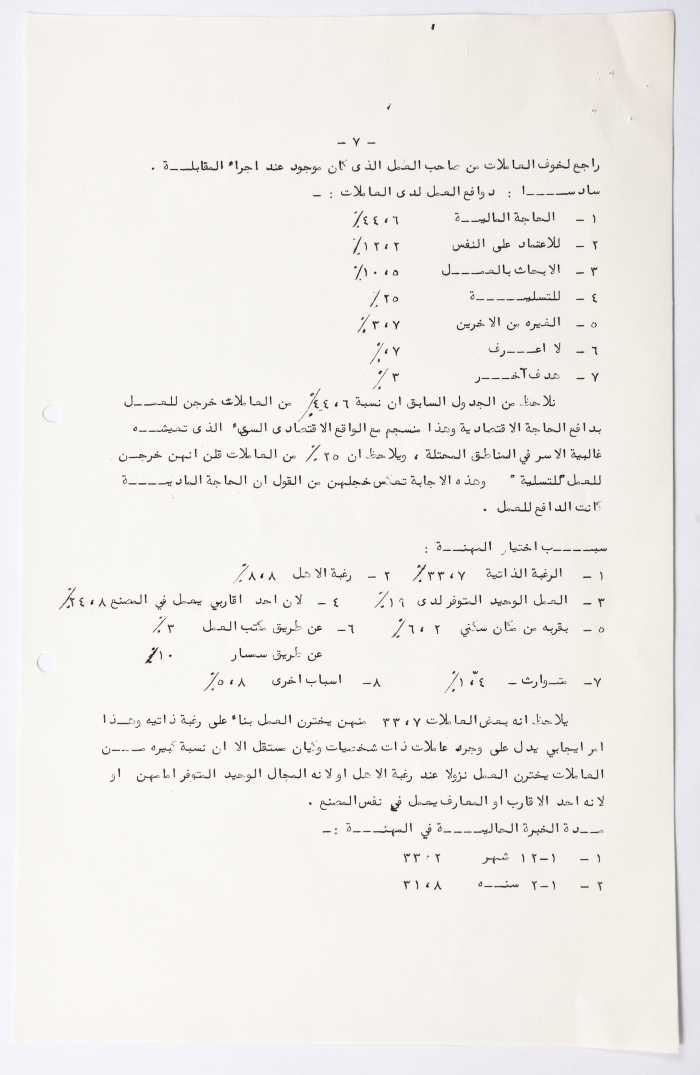 - ٧ -
راجع لخوف العاملات من صاحب العمل الذى كان موجود عند اجراء المقابلـــة .
سادســـــا : دوافع العمل لدى العاملات : -
١ - الحاجة الماليــة ٤٤،٦٪
٢ - للاعتماد على النفس ١٢،٢٪
٣ - الابحاث بالعمـــل ١٠،٥٪
٤ - للتسليـــــة ٢٥٪
٥ - الغيره من الاخرين ٣،٧٪
٦ - لا اعـــرف ٧،٪
٧ - هدف آخـــر ٣٪
نلاحظ من الجدول السابق ان نسبة ٤٤،٦٪ من العاملات خرجن للعمـــل
بدافع الحاجة الاقتصادية وهذا منسجم مع الواقع الاقتصادى السيء الذى تعيشــه
غالبية الاسر في المناطق المحتلة ، ويلاحظ ان ٢٥٪ من العاملات قلن انهن خرجــن
للعمل "للتسلية " وهذه الاجابة تعكس خجلهن من القول ان الحاجة الماديـــــة
كانت الدافع للعمل .
سبـــــب اختيار المهنــة :
١ - الرغبة الذاتية ٣٣،٧٪ ٢ - رغبة الاهل ٨،٨٪
٣ - العمل الوحيد المتوفر لدى ١٩٪ ٤ - لان احد اقاربي يعمل في المصنع ٢٤،٨٪
٥ - بقربه من مكان سكني ٦،٢٪ ٦- عن طريق مكتب العمل ٣٪
عن طريق سمسار ١٠٪
٧- متـوارث - ١،٤٪ ٨- اسباب اخرى ٥،٨٪
يلاحظ انه بعض العاملات ٣٣،٧ منهن يخترن العمل بناء على رغبة ذاتيه وهــذا
امر ايجابي يدل على وجود عاملات ذات شخصيات وكيان مستقل الا ان نسبة كبيره مـــن
العاملات يخترن العمل نزولا عند رغبة الاهل او لانه المجال الوحيد المتوفر امامهن او
لانه احد الاقارب او المعارف يعمل في نفس المصنع .
مـــدة الخبرة الحاليــــة في المهنـــة :-
١ - ١-١٢ شهر ٣٣،٢
٢ - ١-٢ سنـــه ٣١،٨